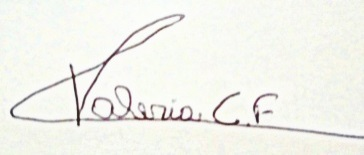 Valeria C.F